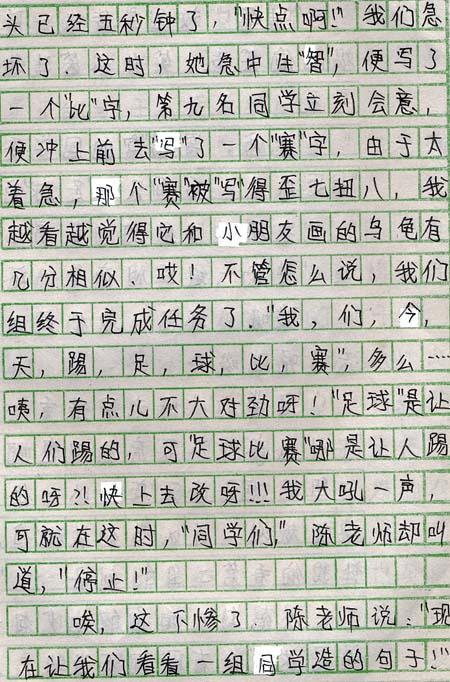 头已经五秒钟了，"快点啊！"我们急
坏了．这时，她急中生"智"，便写了
一个"比"字，第九名同学立刻会意，
便冲上前去"写"了一个"赛"字，由于太
着急，那个"赛"被"写"得歪七扭八，我
越看越觉得它和小朋友画的乌龟有
几分相似．哎！不管怎么说，我们
组终于完成任务了．"我，们，今，
天，踢，足，球，比，赛"，多么……
咦，有点儿不大对劲呀！"足球"是让
人们踢的，可"足球比赛"哪是让人踢
的呀?!快上去改呀!!!我大吼一声，
可就在这时，"同学们，"陈老师却叫
道，"停止！"
唉，这下惨了．陈老师说："现
在让我们看看一组同学造的句子！"